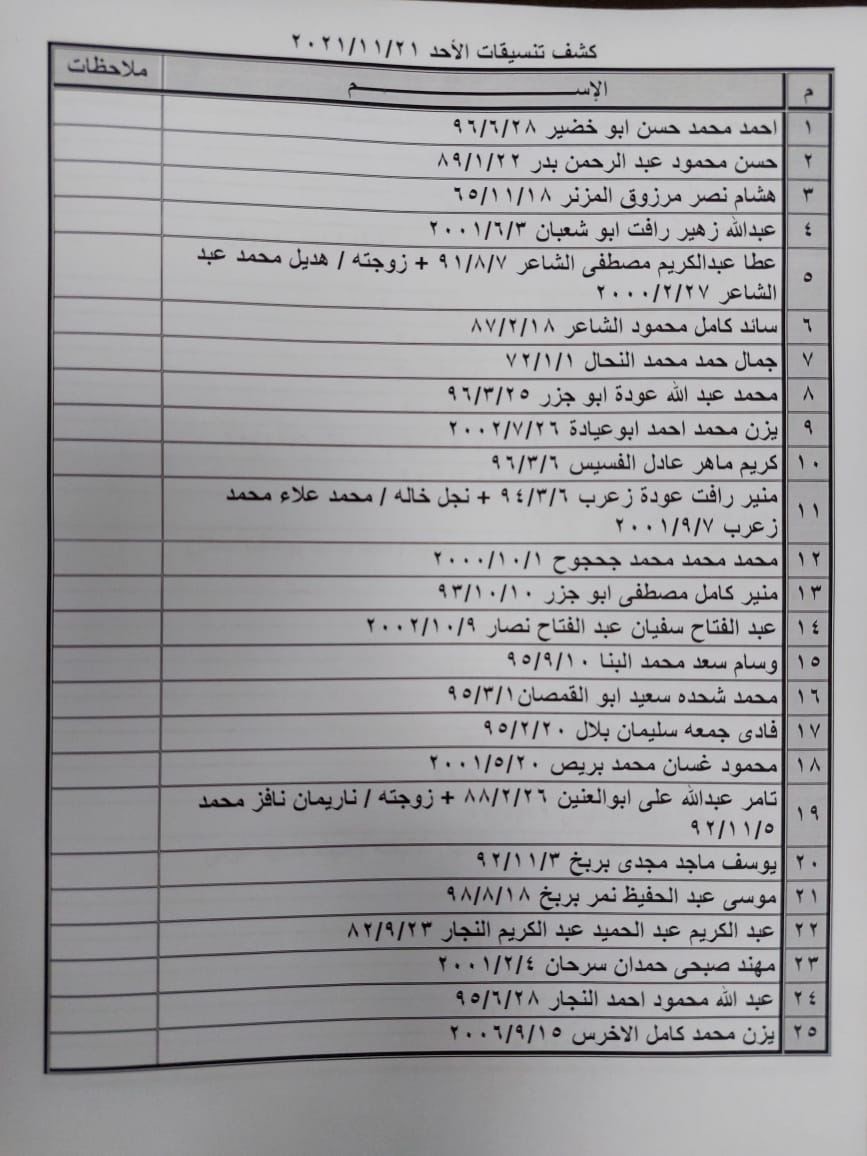 كشف تنسيقات الأحد ٢٠٢١/١١/٢١
م الإســـــــــــم ملاحظات
١ احمد محمد حسن ابو خضير ٩٦/٦/٢٨
٢ حسن محمود عبد الرحمن بدر ٨٩/١/٢٢
٣ هشام نصر مرزوق المزنر ٦٥/١١/١٨
٤ عبدالله زهير رافت ابو شعبان ٢٠٠١/٦/٣
٥ عطا عبدالكريم مصطفى الشاعر ٩١/٨/٧ + زوجته / هديل محمد عبد
الشاعر ٢٠٠٠/٢/٢٧
٦ سائد كامل محمود الشاعر ٨٧/٢/١٨
٧ جمال حمد محمد النحال ٧٢/١/١
٨ محمد عبد الله عودة ابو جزر ٩٦/٣/٢٥
٩ يزن محمد احمد ابوعيادة ٢٠٠٢/٧/٢٦
١٠ كريم ماهر عادل الفسيس ٩٦/٣/٦
١١ منير رافت عودة زعرب ٩٤/٣/٦ + نجل خاله / محمد علاء محمد
زعرب ٢٠٠١/٩/٧
١٢ محمد محمد محمد جحجوح ٢٠٠٠/١٠/١
١٣ منير كامل مصطفى ابو جزر ٩٣/١٠/١٠
١٤ عبد الفتاح سفيان عبد الفتاح نصار ٢٠٠٢/١٠/٩
١٥ وسام سعد محمد البنا ٩٥/٩/١٠
١٦ محمد شحده سعيد ابو القمصان٩٥/٣/١
١٧ فادى جمعه سليمان بلال ٩٥/٢/٢٠
١٨ محمود غسان محمد بريص ٢٠٠١/٥/٢٠
١٩ تامر عبدالله على ابوالعنين ٨٨/٢/٢٦ + زوجته / ناريمان نافز محمد
٩٢/١١/٥
٢٠ يوسف ماجد مجدى بربخ ٩٢/١١/٣
٢١ موسى عبد الحفيظ نمر بربخ ٩٨/٨/١٨
٢٢ عبد الكريم عبد الحميد عبد الكريم النجار ٨٢/٩/٢٣
٢٣ مهند صبحى حمدان سرحان ٢٠٠١/٢/٤
٢٤ عبد الله محمود احمد النجار ٩٥/٦/٢٨
٢٥ يزن محمد كامل الاخرس ٢٠٠٦/٩/١٥